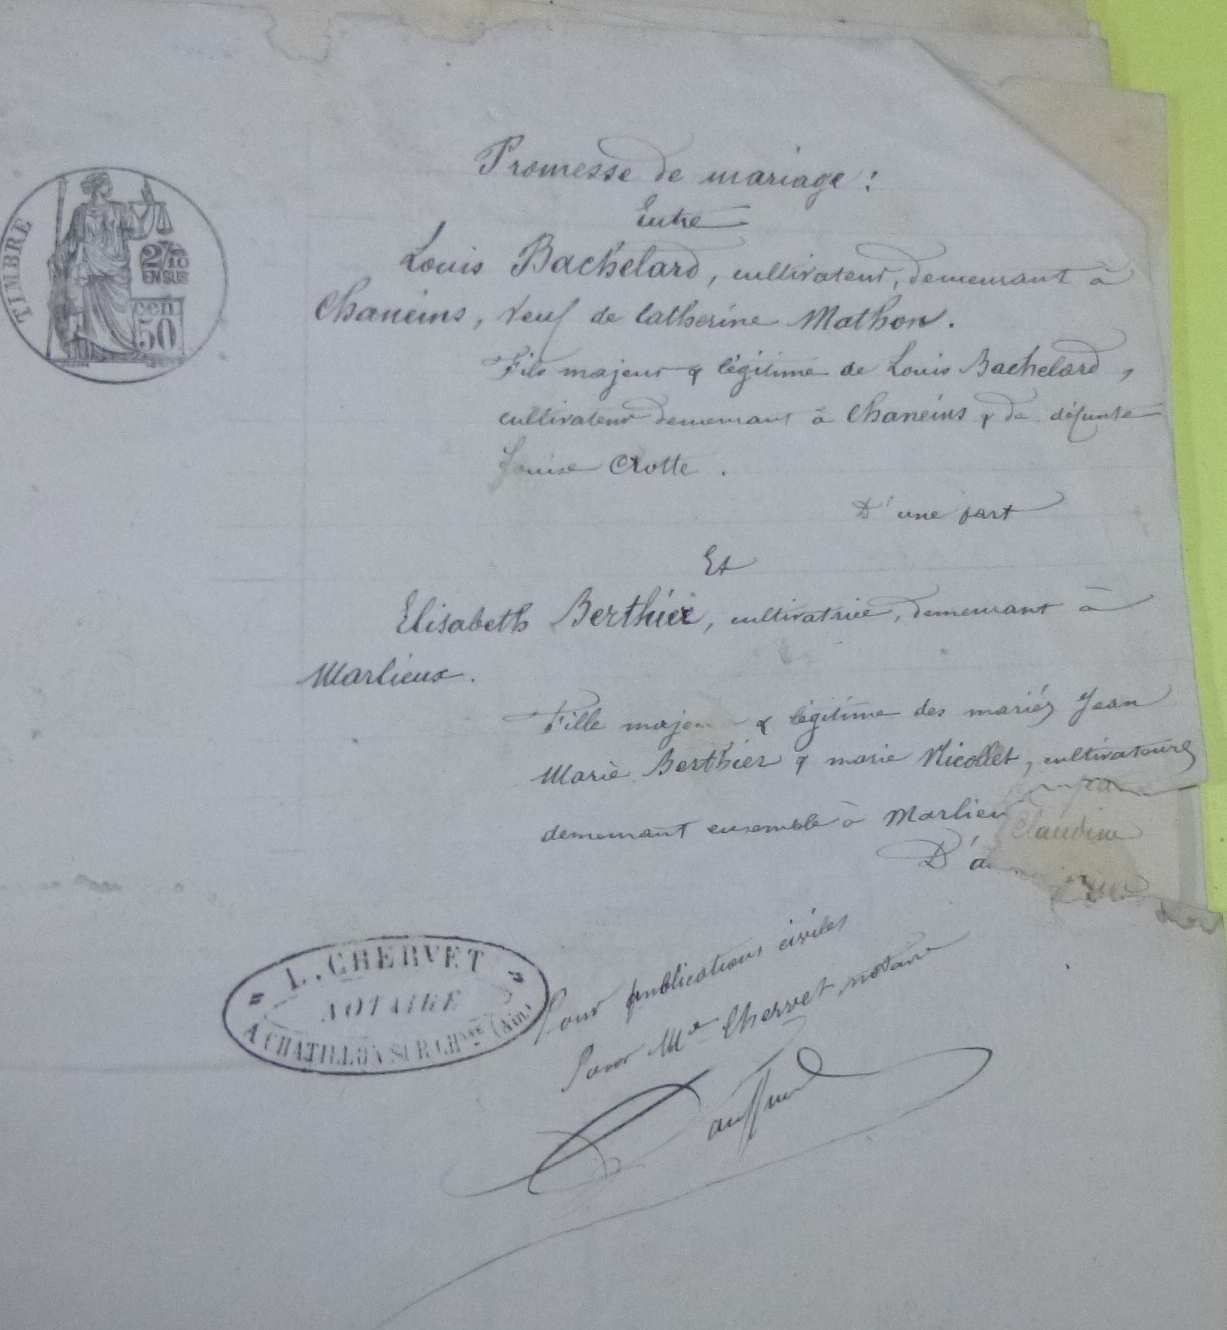 Promesse de mariage :
Entre
Louis Bachelard, cultivateur, demeurant à
Chaneins, veuf de Catherine Mathon.
Fils majeur & légitime de Louis Bachelard,
cultivateur demeurant à Chaneins & de défunte
Louise Crotte.
D'une part
Et
Elisabeth Berthier, cultivatrice, demeurant à
Marlieux.
Fille majeu & légitime des mariés Jean
Marie Berthier & marie Nicollet, cultivateurs
demeurant ensemble à Marlieu
Claudine
D'a
Pour publications civiles
Pour Me Chervet, notaire
TIMBRE
2/10
EN SUS
cen.
50
L. CHERVET
NOTAIRE
A CHATILLON SUR CHNNE (Ain)